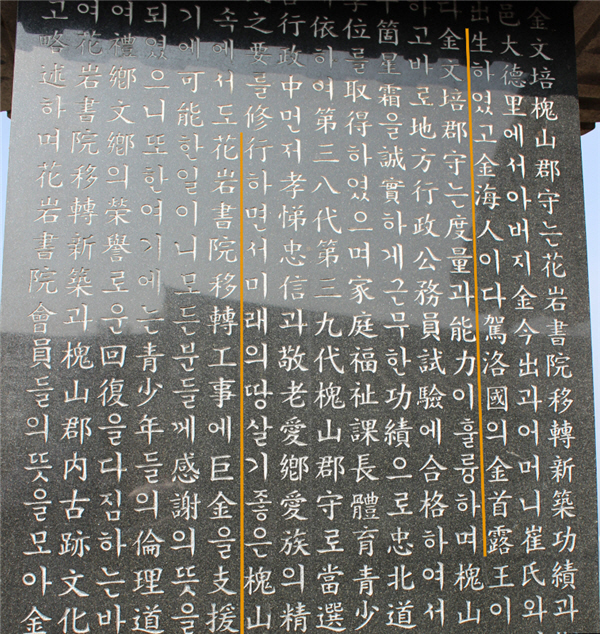 金文培槐山郡守는花岩書院移轉新築功績과
邑大德里에서아버지金今出과어머니崔氏와
出生하였고金海人이다駕洛國의金首露王이
다金文培郡守는度量과能力이훌륭하며槐山
하고바로地方行政公務員試驗에合格하여서
箇星霜을誠實하게근무한功績으로忠北道
學位를取得하였으며家庭福祉課長體育青少
依하여第三八代第三九代槐山郡守로當選
行政中먼저孝悌忠信과敬老愛鄉愛族의精
之要를修行하면서미래의땅살기좋은槐山
속에서도花岩書院移轉工事에巨金을支援
기에可能한일이니모든분들께感謝의뜻을
되였으니또한여기에는青少年들의倫理道
여禮鄉文鄉의榮譽로운回復을다짐하는바
여花岩書院移轉新築과槐山郡内古跡文化
고略述하며花岩書院會員들의뜻을모아金